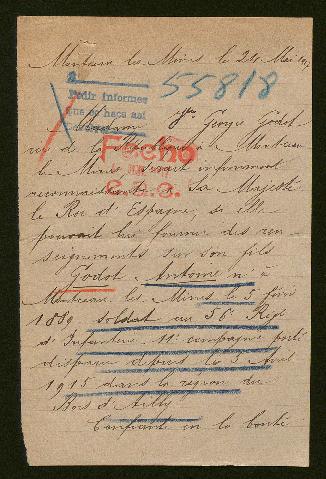 Montceau les Mines le 24 Mai 1917
55818
Pedir informes
que se haga así
Madame Vve Georges Godot
rue de la République à Montceau
Fecho
les Mines serait infiniment
reconnaissante à Sa Majesté
le Roi d'Espagne, si elle
pouvait lui fournir des ren
seignements sur son fils
Godot Antoine né à
Montceau les Mines le 5 février
1889 soldat au 56e Régt
d'Infanterie 11e compagnie porté
disparu depuis le 5 avril
1915 dans la région du
Bois d'Ailly
Confiante en la bonté